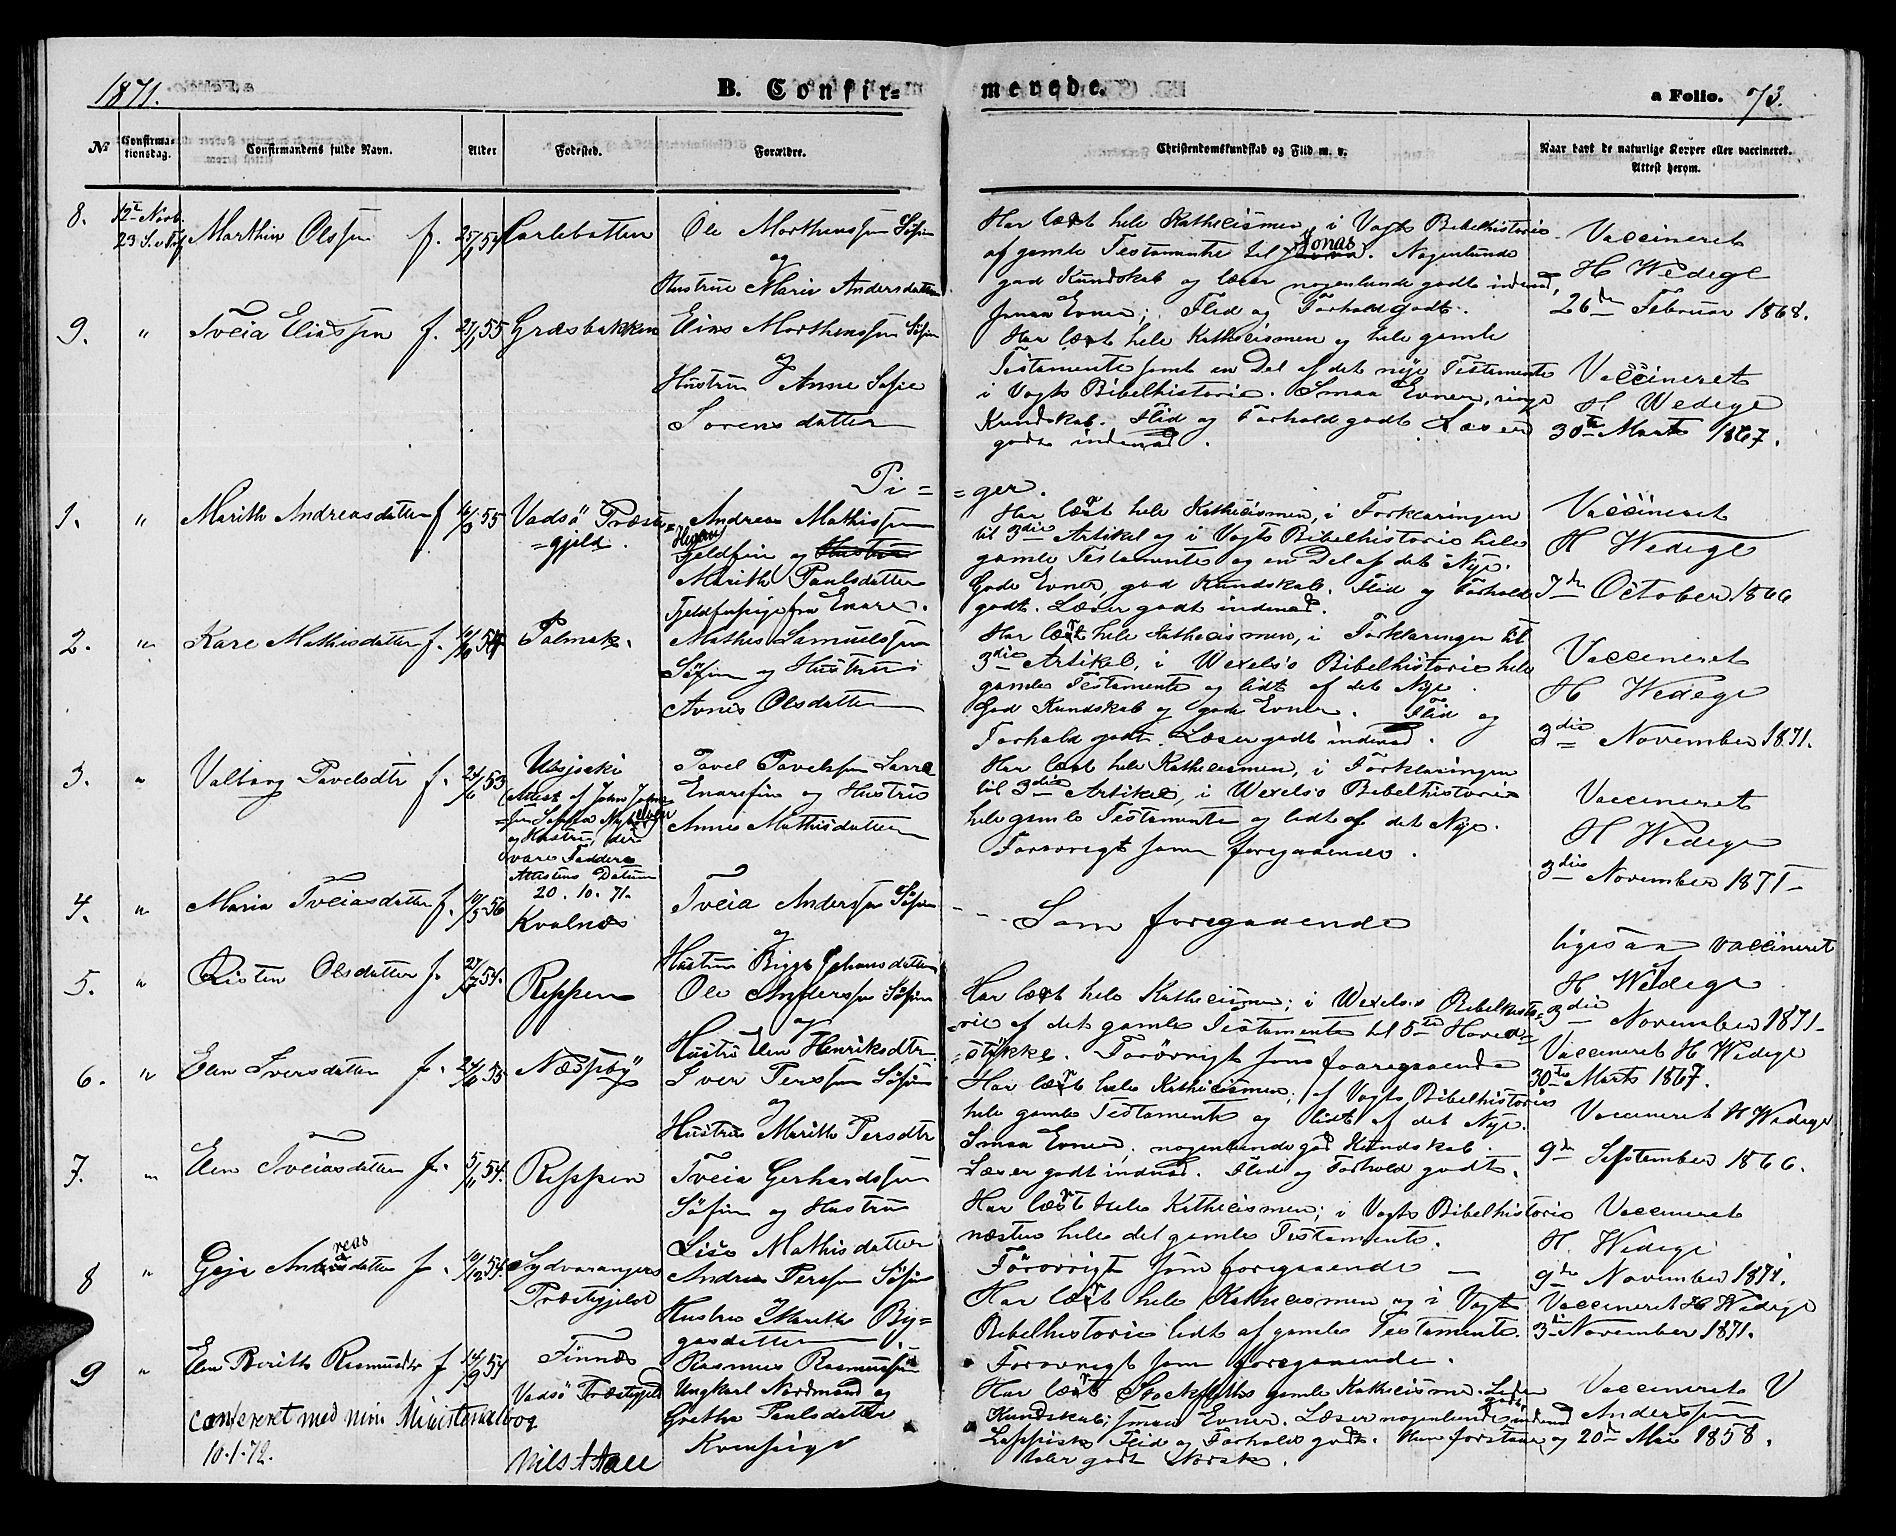 1871.
B. Confir=
merede.
a Folio. 73.
No
Confirma-
tionsdag.
Confirmandens fulde Navn.
Alder
Fødested.
Forældre.
Christendomskundskab og Flid m. v.
Naar havt de naturlige Kopper eller vaccineret.
Attest herom.
8.
12te Novb.
23 S. e. Tref.
Marthin Olssen f.
Carlebotten
Ole Morthenssen Søfin
og
Hustrue Marie Andersdatter
Har læst hele Kathecismen, i Vogts Bibelhistorie
af gamle Testamente til Jonas. Nogenlunde
god Kundskab og læser nogenlunde godt indenad,
smaa Evner; Flid og Forhold godt.
Vaccineret
H Wedege
26de Februar 1868.
9.
"
Tveia Eliassen f.
21/1 55
Græsbakken
Elias Morthenssen Søfin
og
Hustru Anne Sofie
Sørensdatter
Har læst hele Kathecismen og hele gamle
Testamente samt en Del af det nye Testamente
i Vogts Bibelhistorie. Smaa Evner, ringe
Kundskab. Flid og Forhold godt Læser
godt indenad.
Vaccineret
H. Wedege
30te Marts 1867.
Pi=
=ger.
1.
"
Marith Andreasdatter f
55
Vadsø Præste=
=gjeld.
Andreas Mathissen
Fjeldfin og Hustrue
Marith Paulsdatter
Fjeldfinpige fra Enare.
Har læst hele Kathecismen, i Forklaringen
til 3die Artikel og i Vogts Bibelhistorie hele
gamle Testamente og en Del af det Nye.
Gode Evner, god Kundskab. Flid og Forhold
godt. Læser godt indenad.
Vaccineret
H Wedege
7de October 1866
2.
"
Kare Mathisdatter f.
54
Polmak.
Mathis Samuelssen
Søfin og Hustrue
Avnes Olsdatter
Har læst hele Kathecismen, i Forklaringen til
3die Artikel, i Wexels's Bibelhistorie hele
gamle Testamente og lidt af det Nye.
God Kundskab og gode Evner. Flid og
Forhold godt. Læser godt indenad.
Vaccineret
H Wedege
3die November 1871.
3.
"
Valborg Pavelsdtr f.
24/6 53
Utsjoki
(Attest af John John=
og Hustru, der
vare Faddere
Attestens Datum
20.10.71.
Pavel Pavelssen Sarre
Enarefin og Hustrue
Anne Mathisdatter
Har læst hele Kathecismen, i Forklaringen
til 3die Artikel, i Wexels's Bibelhistorie
hele gamle Testamente og lidt af det Nye.
Forøvrigt som foregaaende.
Vaccineret
H Wedege
3die November 1871
4.
"
Maria Tveiasdatter f.
10/5 56
Kvalnæs
Tveia Anderssen Søfin
og
Hustrue Bigge Johansdatter
Som foregaaende
ligesaa vaccineret
H Wedege
3die November 1871
5.
"
Kristen Olsdatter f.
54.
Reppen
Ole Anderssen Søfin
og
Hustru Elen Henriksdtr.
Har læst hele Kathecismen; i Wexels's Bibelhisto=
=rie af det gamle Testamente til 5te Hoved=
=stykke. Forøvrigt som foregaaende
Vaccineret H Wedege
30te Marts 1867.
6.
"
Elen Iversdatter f.
55
Næsseby
Iver Perssen Søfin
og
Hustrue Marith Persdtr
Har læst hele Kathecismen; af Vogts Bibelhistorie
hele gamle Testamente og lidt af det Nye.
Smaa Evner, nogenlunde god Kundskab.
Læser godt indenad. Flid og Forhold godt.
Vaccineret H Wedege
9de September 1866.
7.
"
Elen Tveiasdatter f.
5/11 54.
Reppen
Tveia Gerhardssen
Søfin og Hustrue
Lise Mathisdatter
Har læst hele Kathecismen; i Vogts Bibelhistorie
næsten hele det gamle Testamente.
Forøvrigt som foregaaende
Vaccineret
H. Wedege
9de November 1871.
8
"
Gaja Andreasdatter f.
10/12 54.
Sydvarangers
Præstegjeld
Andreas Perssen Søfin
og
Hustru Marith By=
gasdatter
Har læst hele Kathecismen og i Vogts
Bibelhistorie lidt af gamle Testamente.
Forøvrigt som foregaaende.
Vaccineret H Wedege
3die November 1871.
9
"
Elen Berith Rasmusdtr f
14/9 57
Finnæs
Vadsø Præstegjeld
Rasmus Rasmussen
Ungkarl Nordmand og
Grethe Paulsdatter
Kvænpige
Har læst Stockfleths gamle Kathecisme. Liden
Kundskab; smaa Evner. Læser nogenlunde godt indenad
Lappisk. Flid og Forhold godt. Hun forstaar og
taler godt Norsk.
Vaccineret V
Anderssen
20de Mai 1858.
confereret med min Ministerialbog
10.1.72.
Nils A Aall